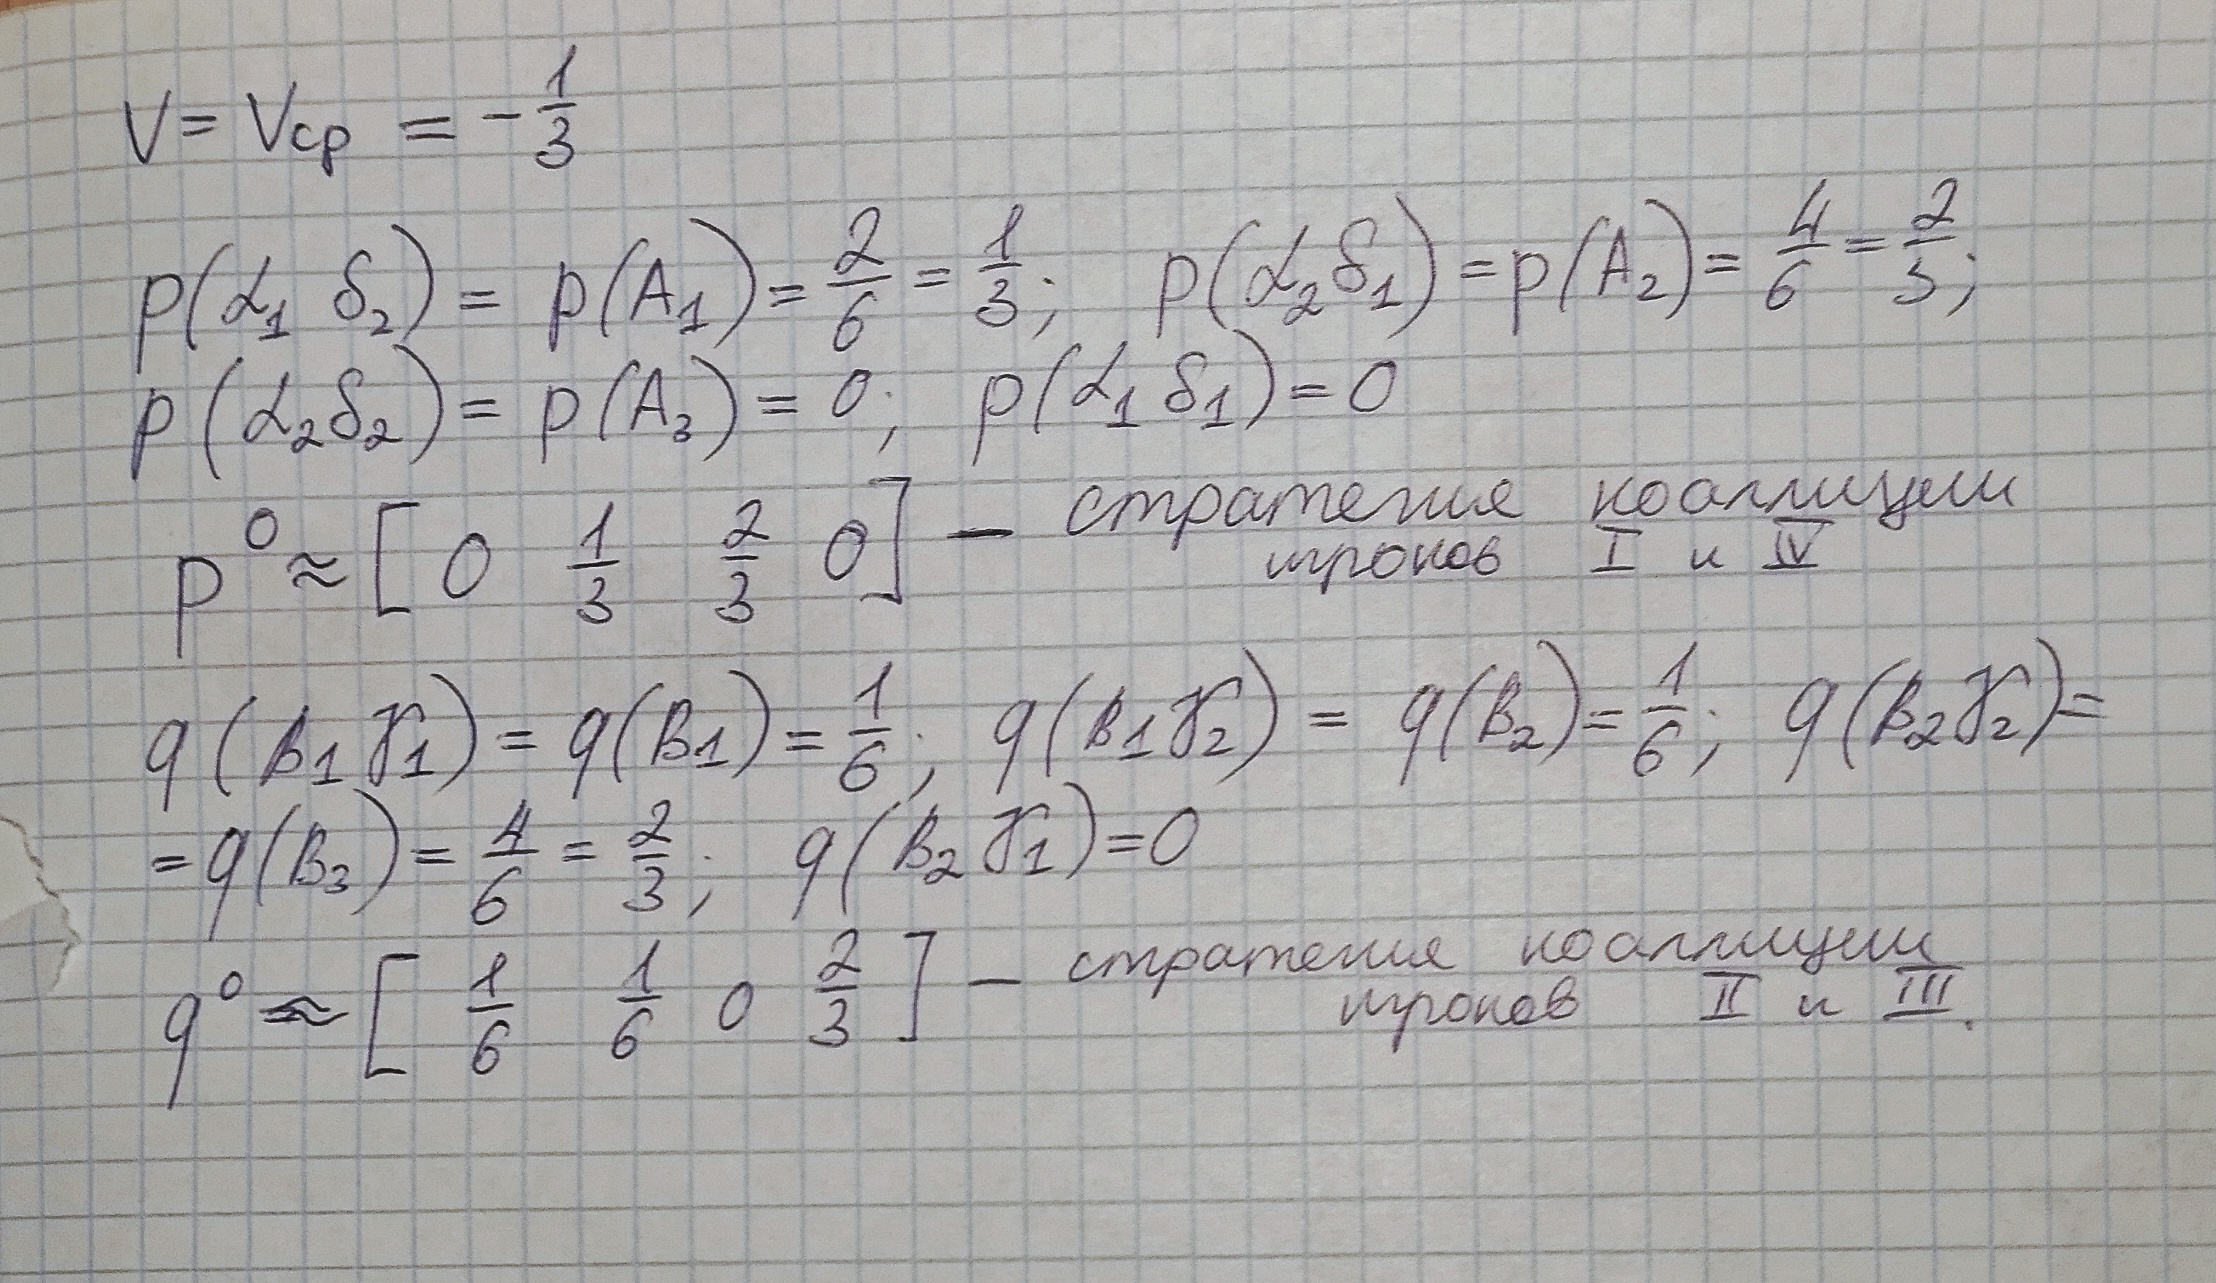 V = Vср = -1/3
p(α₁ δ₂) = p(A₁) = 2/6 = 1/3; p(α₂δ₁) = p(A₂) = 4/6 = 2/3;
p(α₂δ₂) = p(A₃) = 0; p(α₁δ₁) = 0
p⁰ ≈ [0 1/3 2/3 0] — стратегия коаллиции
игроков I и IV
q(B₁γ₁) = q(B₁) = 1/6; q(B₁γ₂) = q(B₂) = 1/6; q(B₂γ₂) =
= q(B₃) = 4/6 = 2/3; q(B₂γ₁) = 0
q⁰ ≈ [1/6 1/6 0 2/3] — стратегия коаллиции
игроков II и III.